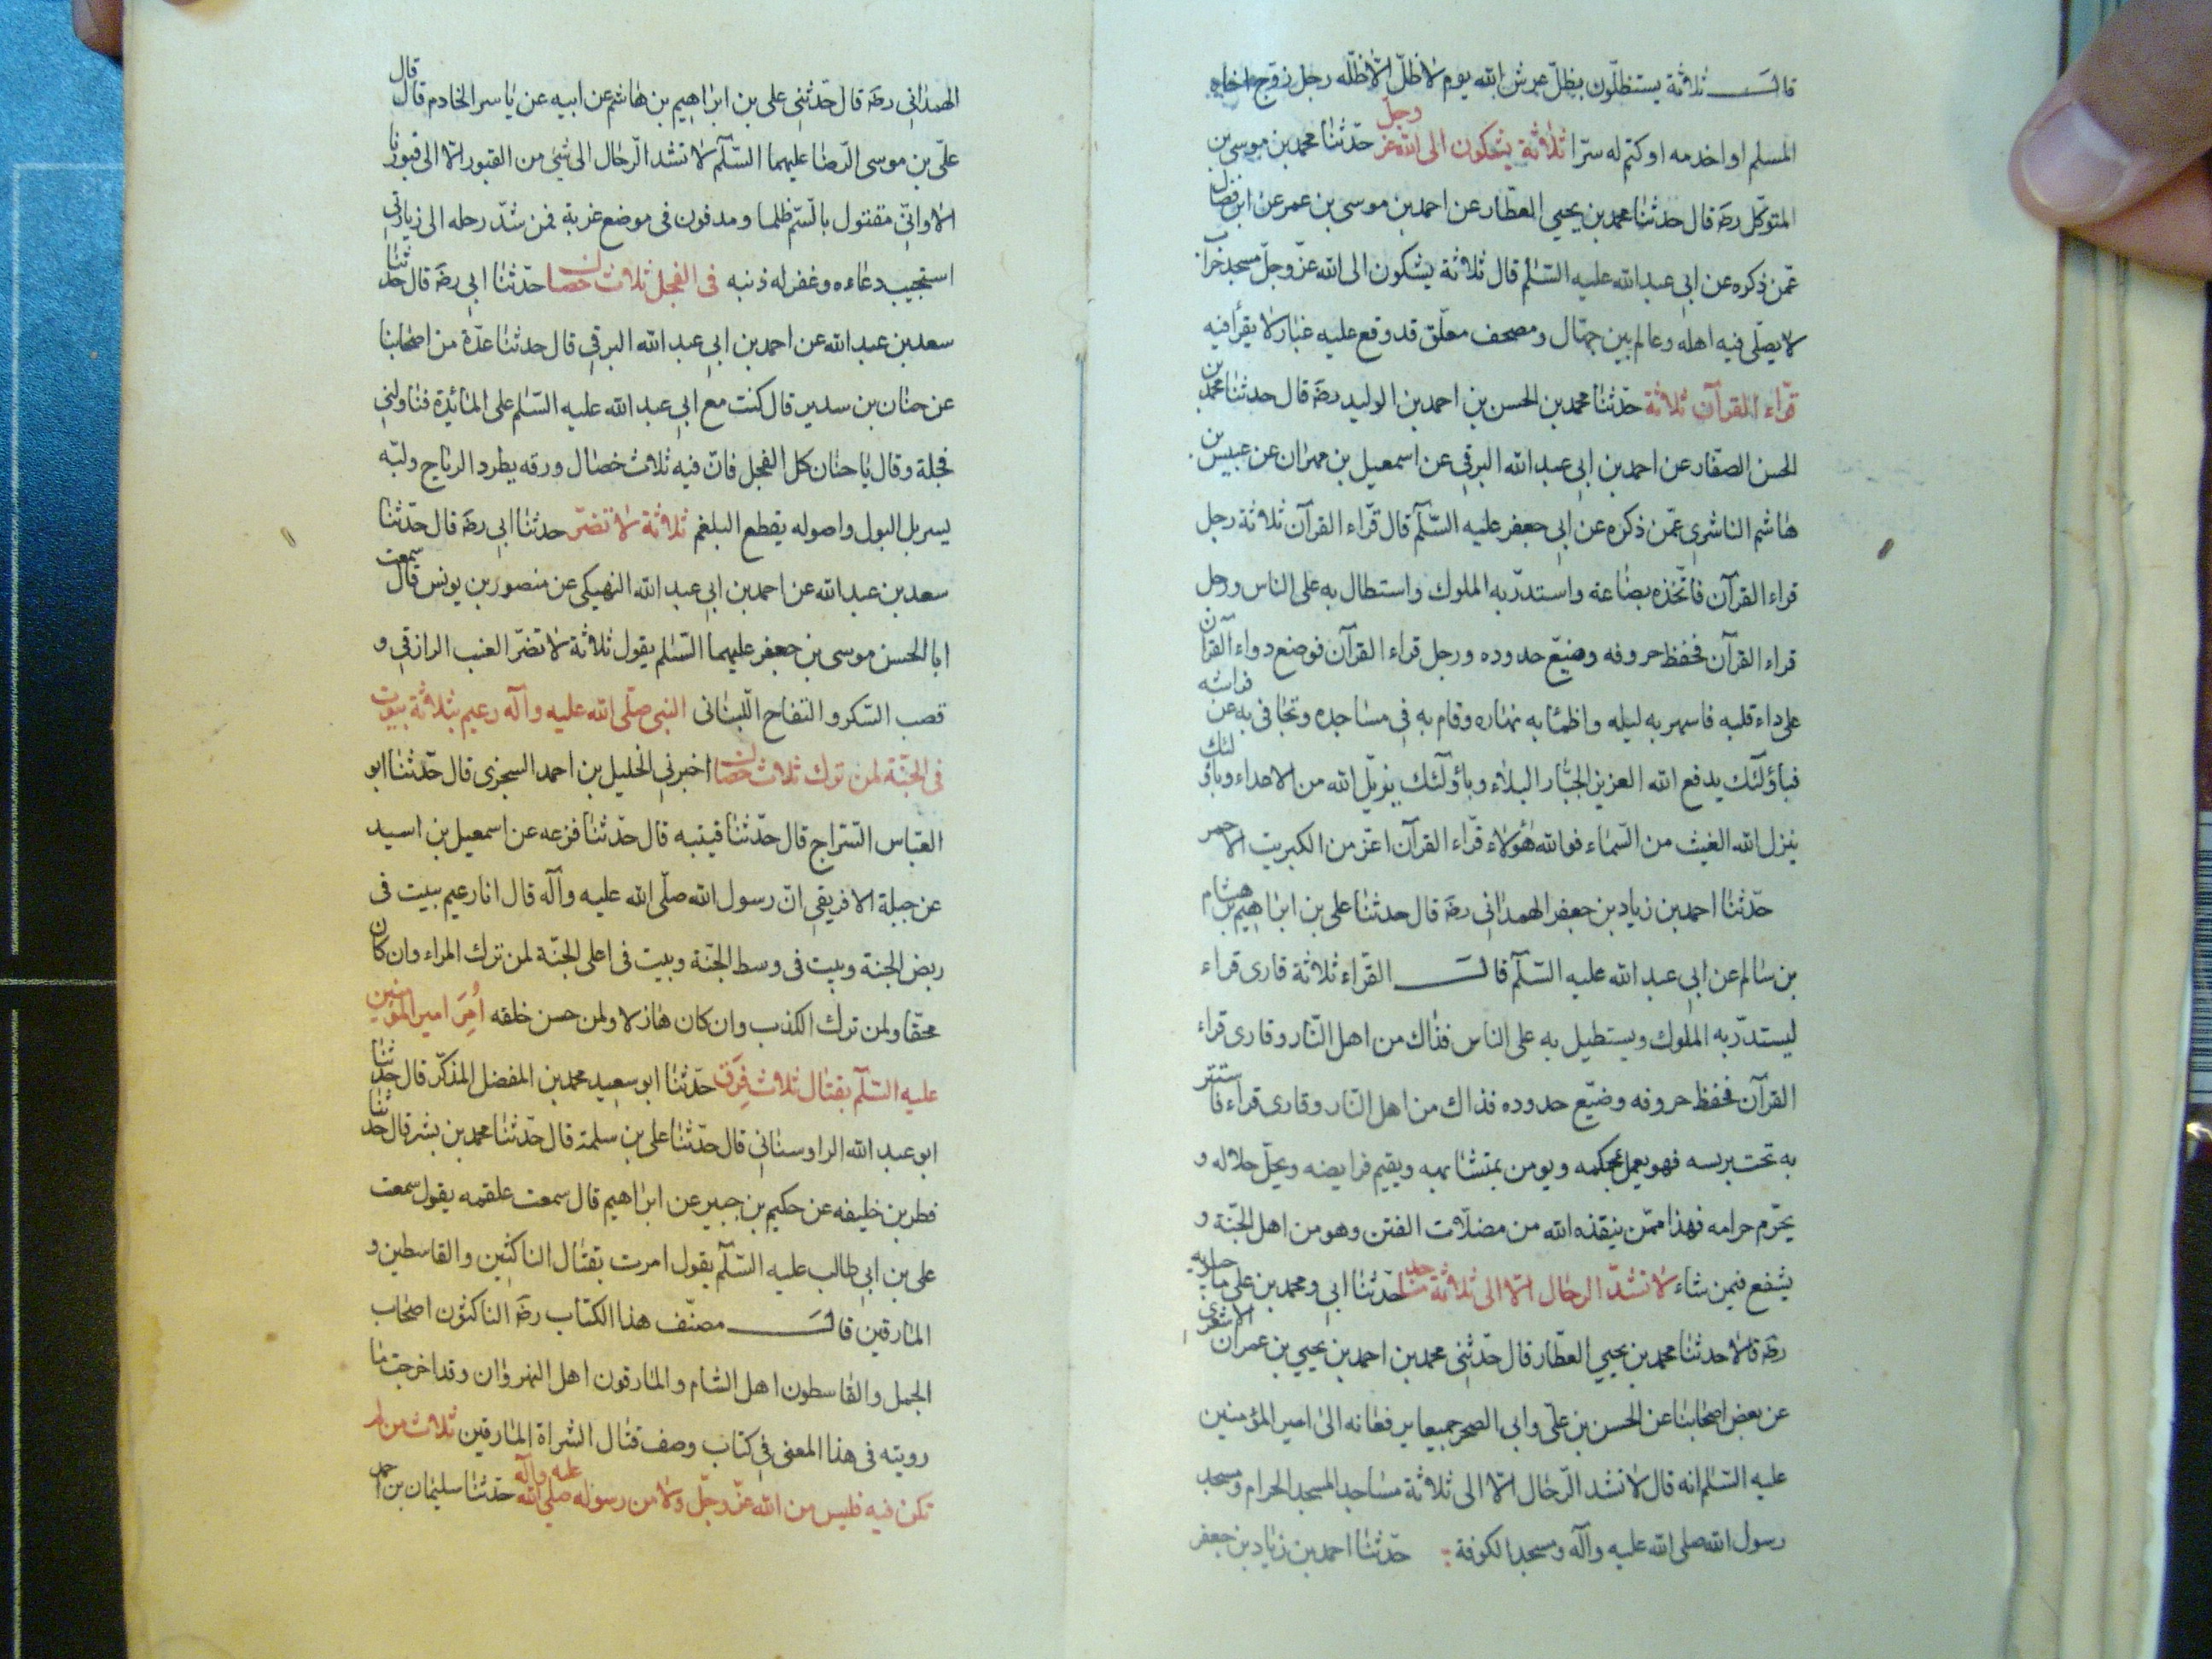 قال ثلاثة يستظلّون بظلّ عرش الله يوم لا ظلّ الّا ظلّه رجل زوّج اخاه
المسلم او اخدمه او كتم له سرّا ثلاثة يشكون الى الله عز وجل حدّثنا محمد بن موسى بن
المتوكّل رضه قال حدثنا محمد بن يحيى العطّار عن احمد بن موسى بن عمر عن ابن فضال
عمّن ذكره عن ابي عبد الله عليه السّلم قال ثلاثة يشكون الى الله عزّ وجلّ مسجد خراب
لا يصلّى فيه اهله وعالم بين جهّال ومصحف معلّق قد وقع عليه غبار لا يقرأ فيه
قرّاء القرآن ثلاثة حدّثنا محمد بن الحسن بن احمد بن الوليد رضه قال حدثنا محمد بن
الحسن الصفّار عن احمد بن ابي عبد الله البرقي عن اسمعيل بن مهران عن عبيس بن
هاشم الناشرى عمّن ذكره عن ابي جعفر عليه السّلم قال قرّاء القرآن ثلاثة رجل
قراء القرآن فاتّخذه بضاعة واستدرّ به الملوك واستطال به على الناس ورجل
قراء القرآن فحفظ حروفه وضيّع حدوده ورجل قراء القرآن فوضع دواء القرآن
على داء قلبه فاسهر به ليله واظمأ به نهاره وقام به في مساجده وتجافى به عن فراشه
فباولٓئك يدفع الله العزيز الجبّار البلاء وباولٓئك يزيل الله من الاعداء وباولئك
ينزل الله الغيث من السّماء فوالله هؤلاء قرّاء القرآن اعزّ من الكبريت الاحمر
حدّثنا احمد بن زياد بن جعفر الهمداني رضه قال حدثنا على بن ابراهيم بن هشام
بن سالم عن ابي عبد الله عليه السّلم قال القرّاء ثلاثة قارى قراء
ليستدرّ به الملوك ويستطيل به على الناس فذاك من اهل النّار وقارى قراء
القرآن فحفظ حروفه وضيّع حدوده فذاك من اهل النّار وقارى قراء فاستتر
به تحت برنسه فهو يعمل بمحكمه ويومن بمتشابهه ويقيم فرايضه ويحلّ حلاله و
يحرّم حرامه فهذا ممّن ينقذه الله من مضلّات الفتن وهو من اهل الجنّة و
يشفع فيمن شاء لا تشدّ الرحال الّا الى ثلاثة مساجد حدّثنا ابي ومحمد بن على ماجيلويه
رضه قالا حدثنا محمد بن يحيى العطّار قال حدّثنى محمد بن احمد بن يحيى بن عمران الاشعرى
عن بعض اصحابنا عن الحسن بن علّى وابى الصحر جميعا يرفعانه الى امير المؤمنين
عليه السّلم انه قال لا تشد الرّحال الّا الى ثلاثة مساجد المسجد الحرام ومسجد
رسول الله صلى الله عليه وآله ومسجد الكوفة حدّثنا احمد بن زياد بن جعفر
الهمداني رضه قال حدّثنى على بن ابراهيم بن هاشم عن ابيه عن ياسر الخادم قال قال
علّى بن موسى الرّضا عليهما السّلم لا تشد الرّحال الى شئ من القبور الّا الى قبورنا
الا وانّي مقتول بالسّم ظلما ومدفون في موضع غربة فمن شدّ رحله الى زيارتي
استجيب دعاءه وغفر له ذنبه فى الفجل ثلاث خصال حدّثنا ابي رضه قال حدثنا
سعد بن عبد الله عن احمد بن ابي عبد الله البرقي قال حدثنا عدّة من اصحابنا
عن حنان بن سدير قال كنت مع ابي عبد الله عليه السّلم على المائدة فناولني
فجلة وقال يا حنان كل الفجل فانّ فيه ثلاث خصال ورقه يطرد الرياح ولبّه
يسربل البول واصوله يقطع البلغم ثلاثة لا تضرّ حدثنا ابي رضه قال حدّثنا
سعد بن عبد الله عن احمد بن ابي عبد الله النهيكي عن منصور بن يونس قال سمعت
ابا الحسن موسى بن جعفر عليهما السّلم يقول ثلاثة لا تضرّ العنب الرازقي و
قصب السّكر والتفاح اللّبناني النبي صلّى الله عليه وآله زعيم بثلاثة بيوت
في الجنّة لمن ترك ثلاث خصال اخبرني الخليل بن احمد السجزى قال حدّثنا ابو
العبّاس السّراج قال حدّثنا قيتبه قال حدّثنا قزعه عن اسمعيل بن اسيد
عن جبلة الافريقي انّ رسول الله صلّى الله عليه وآله قال انا زعيم ببيت فى
ربض الجنة وبيت في وسط الجنّة وبيت في اعلى الجنّة لمن ترك المراء وان كان
محقّا ولمن ترك الكذب وان كان هازلا ولمن حسن خلقه اُمِرَ امير المؤمنين
عليه السّلم بقتال ثلاث فِرَق حدّثنا ابو سعيد محمد بن المفضل المذكّر قال حدّثنا
ابو عبد الله الراوستاني قال حدّثنا على بن سلمة قال حدّثنا محمد بن بشر قال حدثنا
فطر بن خليفه عن حكيم بن جبير عن ابراهيم قال سمعت علقمه يقول سمعت
على بن ابي طالب عليه السّلم يقول امرت بقتال الناكثين والقاسطين و
المارقين قال مصنّف هذا الكتاب رضه الناكثون اصحاب
الجمل والقاسطون اهل الشام والمارقون اهل النهروان وقد اخرجت ما
رويته فى هذا المعنى في كتاب وصف قتال الشراة المارقين ثلاث من لم
تكن فيه فليس من الله عزّ وجلّ ولا من رسوله صلى الله عليه وآله حدّثنا سليمان بن احمد